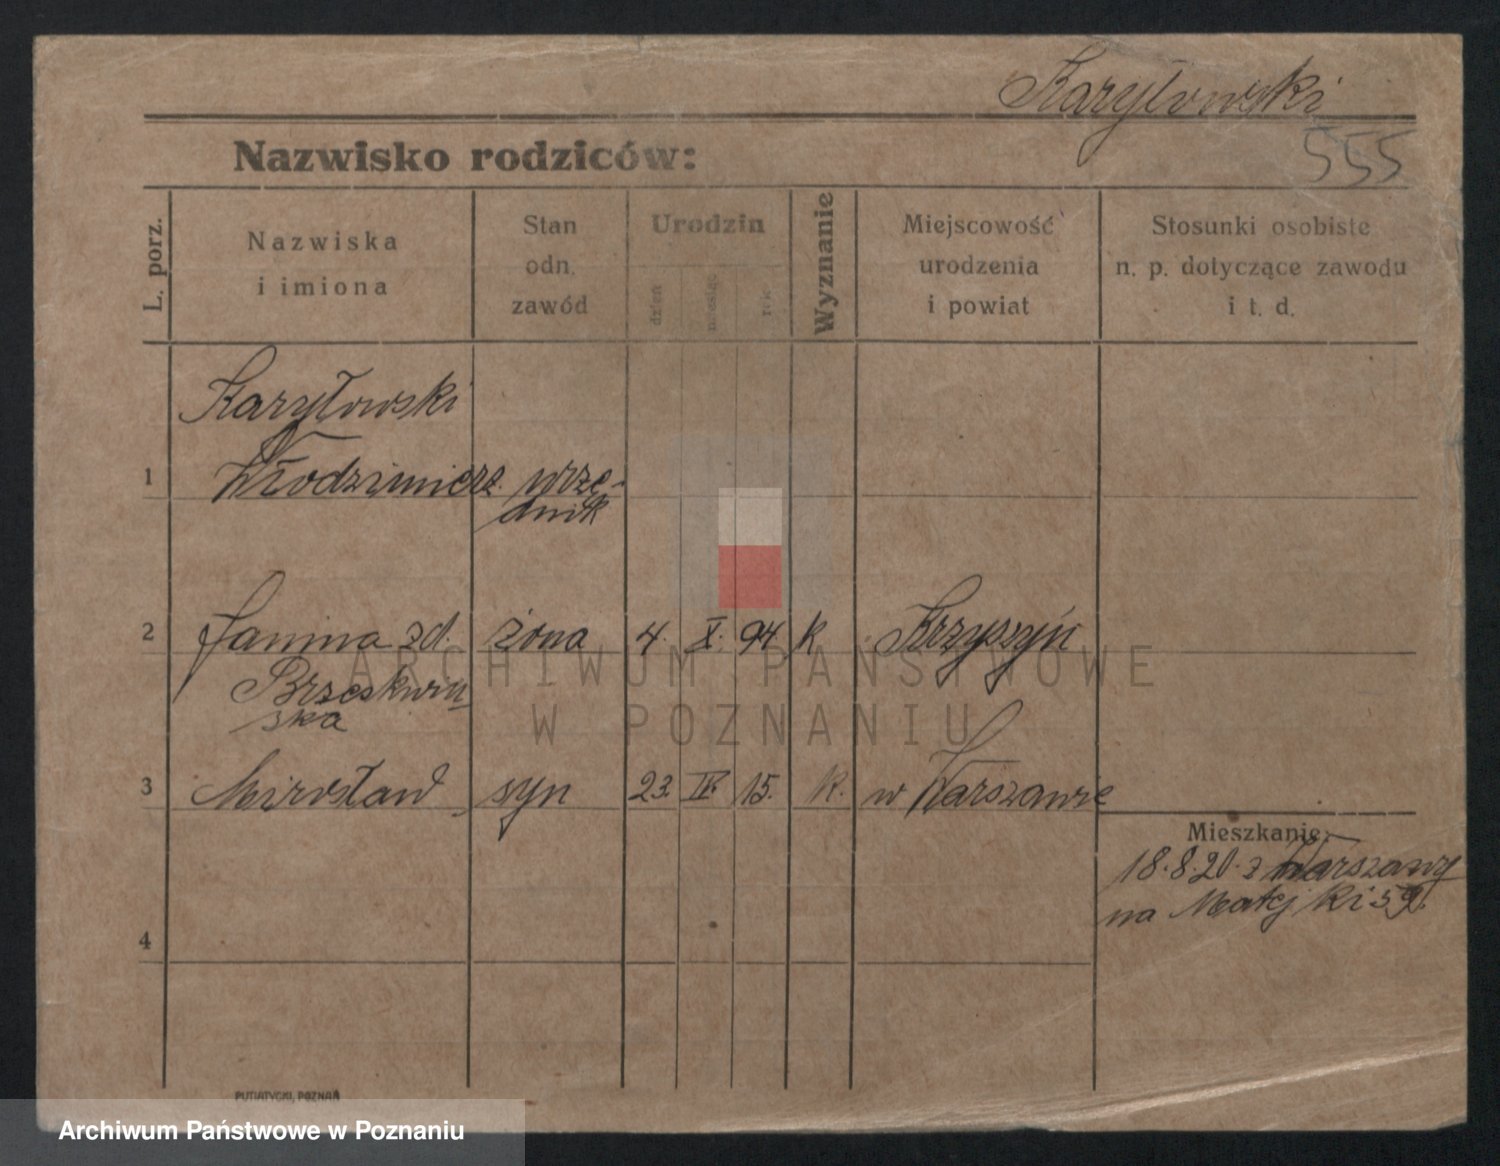 Karyłowski
555
Nazwisko rodziców:
L. porz.
Nazwiska
i imiona
Stan
odn.
zawód
Urodzin
dzień
miesiąc
rok
Wyznanie
Miejscowość
urodzenia
i powiat
Stosunki osobiste
n. p. dotyczące zawodu
i t. d.
Karyłowski
1 Włodzimierz urzę-
dnik
2 Janina zd. żona 4. X. 94. k Krzyszyń
Brzeskwiń
ska
3 Mirosław syn 23. IV. 15. k. w Warszawie
Mieszkanie:
18.8.20. z Warszawy
na Matejki 59.
4
PUTIATYCKI, POZNAŃ
ARCHIWUM PAŃSTWOWE
W POZNANIU
Archiwum Państwowe w Poznaniu